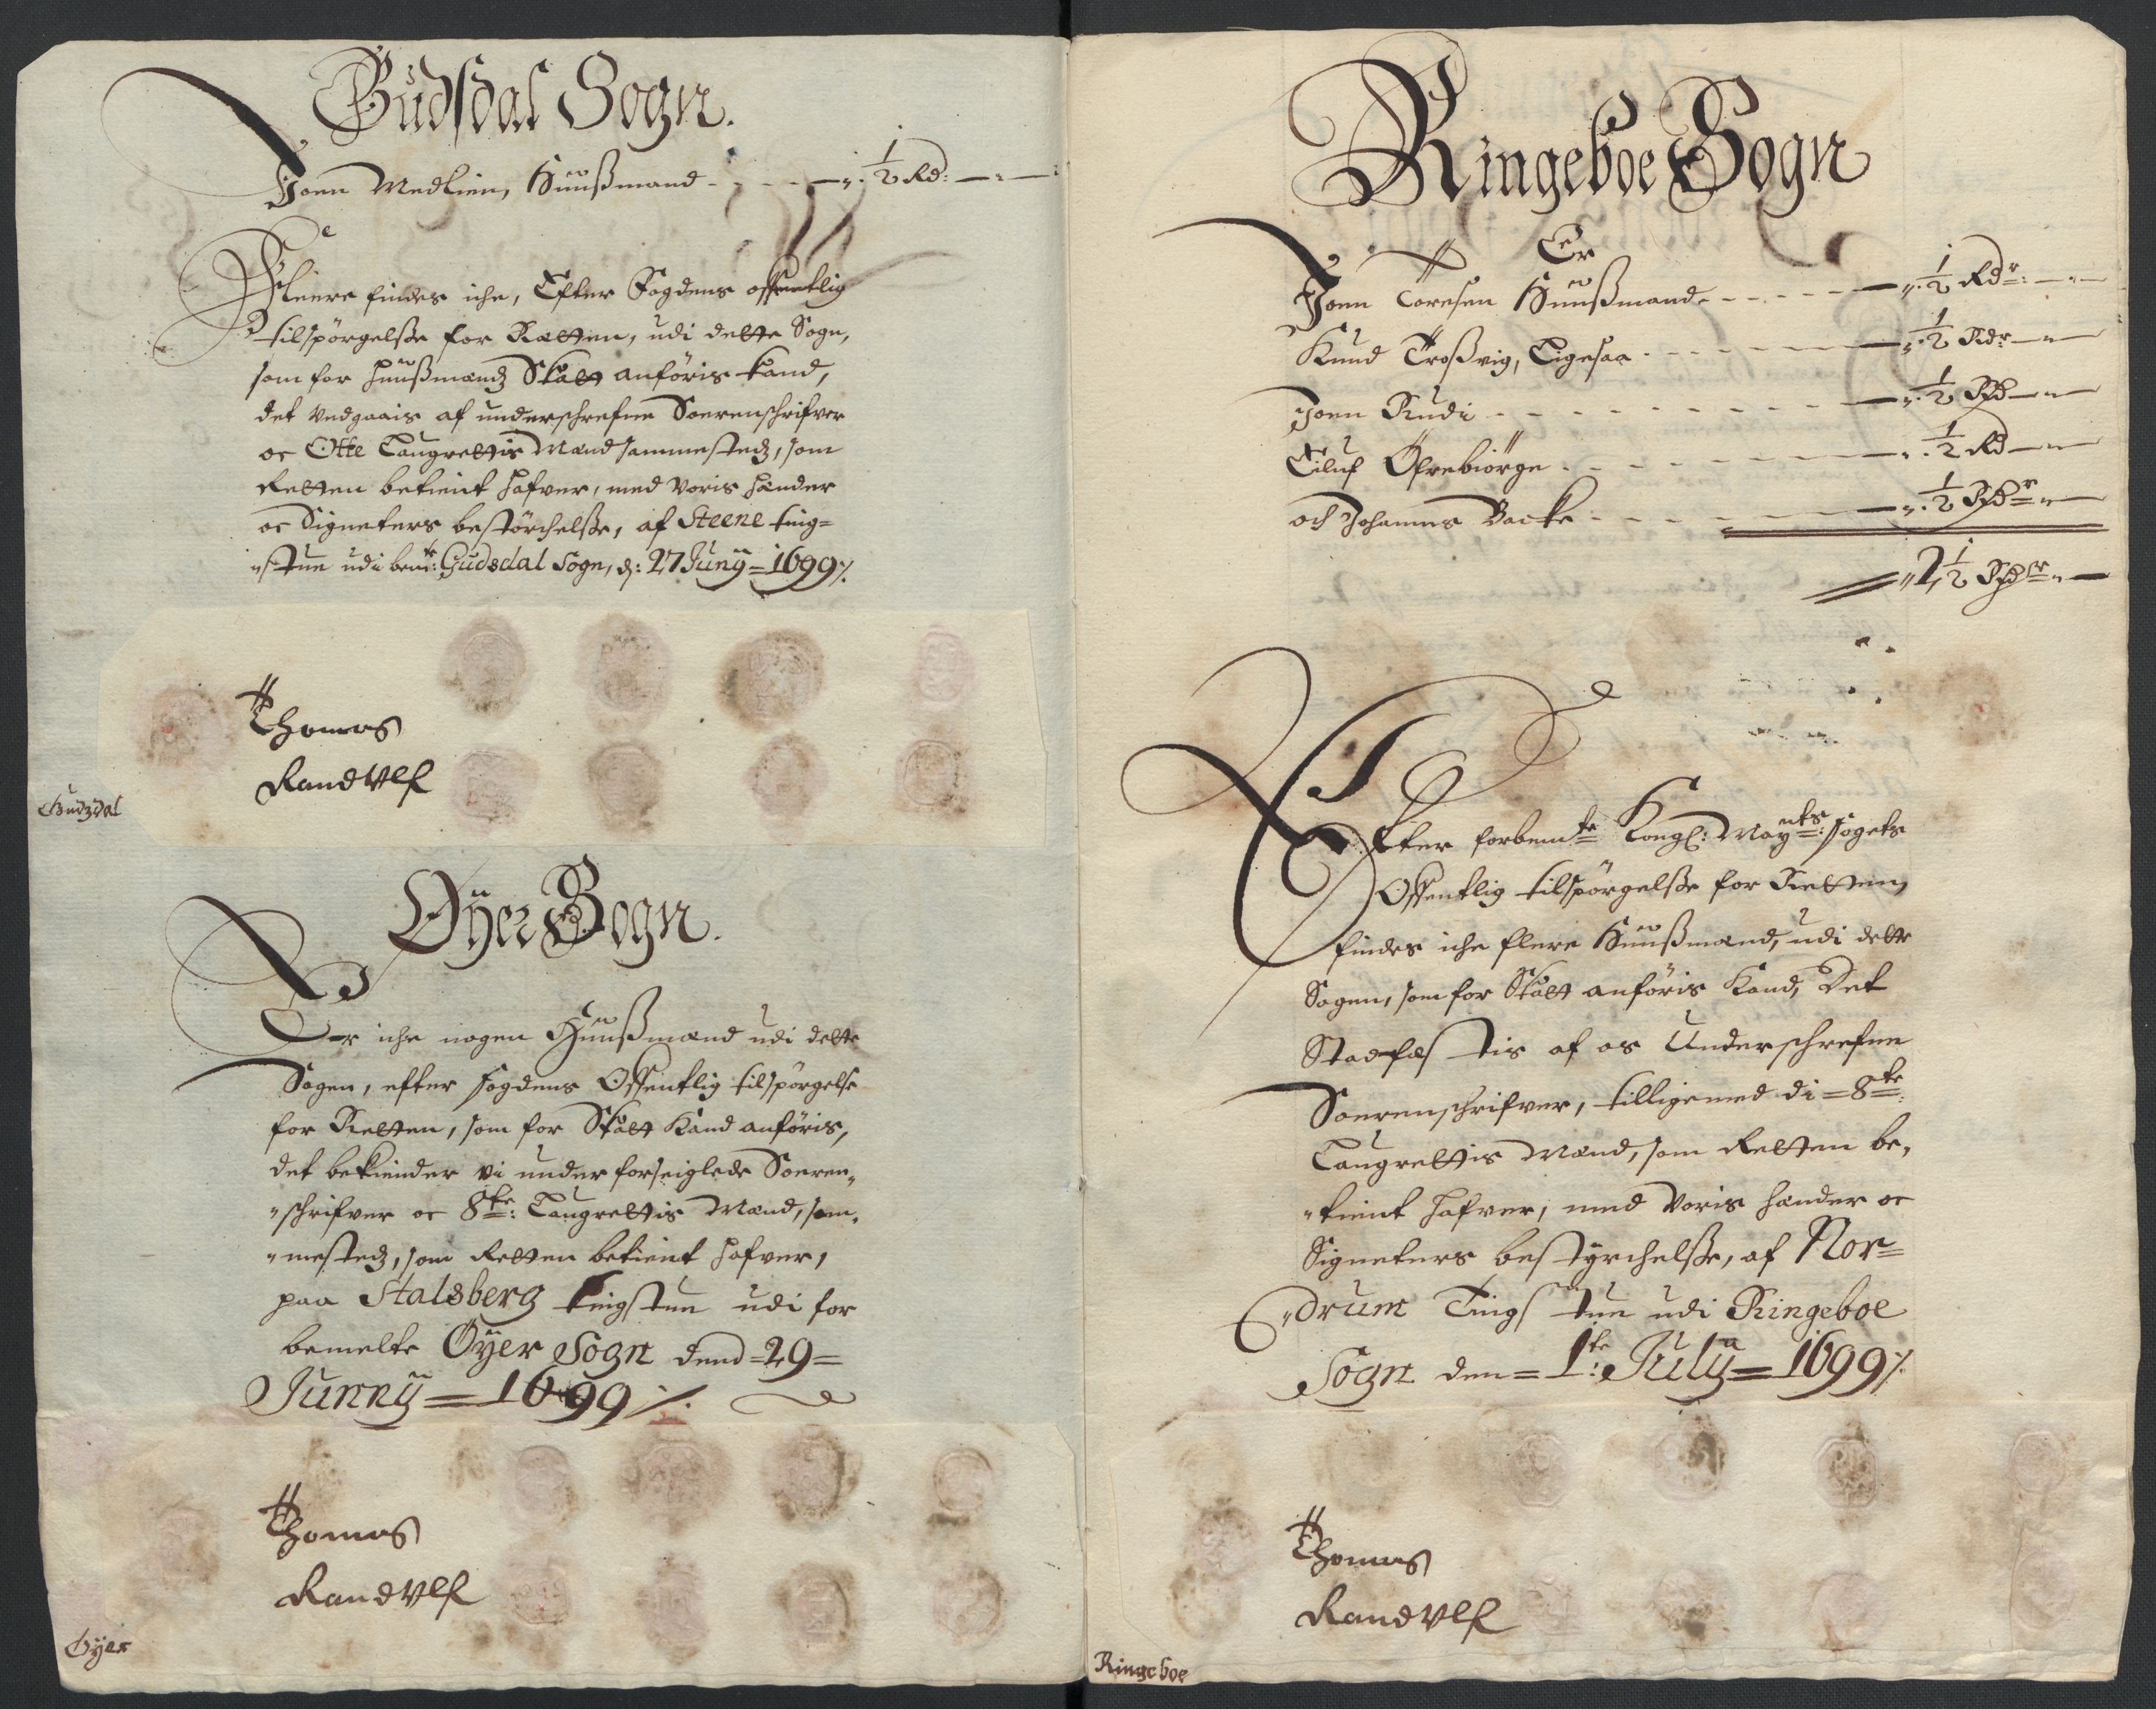 Gudsdal Sogn.
Joen Medlien, Huußmand - - - - ½ Rd:
Fleere findes iche, Efter Fogdens offentlig
tilspörgelße for Rætten, udi dette Sogn,
som for huußmandz Skatt anföris kand,
det vedgaais af underschrefne Sorenschrifver
oc Otte Laugrettis Mænd sammestedz, som
Retten betient hafver, med voris hænder
oc Signeters bestörchelße, af Steene ting-
stue udi bemte: Gudsdal Sogn, d: 27 Junij = 1699 ⁒
Thomas
Randvlf
Gudzdal
Öÿer Sogn.
Er iche nogen Huußmænd udi dette
Sogen, efter fogdens Offentlig tilspörgelse
for Retten, som for Skatt Kand anföris,
det bekiender vi underforseiglede Soren-
schrifver oc 8te: Laugrettis Mænd, sam-
mestedz, som Retten betient hafver,
paa Stalsberg tingstue udi for
bemelte Öÿer Sogn dend = 29 =
Junny = 1699 ⁒
Thomas
Randvlf
Öÿer
Ringeboe Sogn
Er
Joen Toresen Huußmand - - - - ½ Rdr:
Knud Troßvig, Ligesaa - - - - ½ Rdr
Joen Rudi - - - - ½ Rd
Eiluf Öfrebiörge - - - - ½ Rd
och Johannes Backe - - - - ½ Rdr
2½ Rdlr
Efter forbemte Kongl: Mayts: fogets
Offentlig tilspörgelße for Retten,
findes iche flere Huußmænd, udi dette
Sogen, som for Skatt anföris Kand, Det
Stadfæstis af os Underschrefne
Sorenschrifver, tilligemed di = 8te:
Laugrettis Mænd, som Retten be-
tient hafver, med voris hænder oc
Signeters bestyrchelße, af Nor-
drum Tingstue udi Ringeboe
Sogn den = 1te: Julij = 1699 ⁒
Thomas
Randvlf
Ringeboe